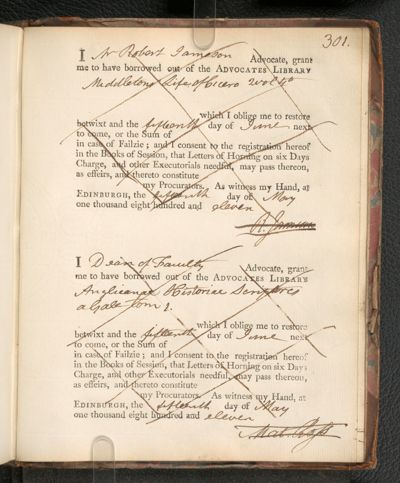 301.
I Mr Robert Jameson Advocate, grant
me to have borrowed out of the ADVOCATES LIBRARY
Middletons Life of Cicero 2 vol 4o
which I oblige me to restore
betwixt and the fifteenth day of June next
to come, or the Sum of
in case of Failzie; and I consent to the registration hereof
in the Books of Session, that Letters of Horning on six Days
Charge, and other Executorials needful, may pass thereon,
as effeirs, and thereto constitute
my Procurators. As witness my Hand, at
EDINBURGH, the fifteenth day of May
one thousand eight hundred and eleven
R. Jameson
I Dean of Faculty Advocate, grant
me to have borrowed out of the ADVOCATES LIBRARY
Anglicanae Historiae Scriptores
a Gale tom 1.
which I oblige me to restore
betwixt and the fifteenth day of June next
to come, or the Sum of
in case of Failzie; and I consent to the registration hereof
in the Books of Session, that Letters of Horning on six Days
Charge, and other Executorials needful, may pass thereon,
as effeirs, and thereto constitute
my Procurators. As witness my Hand, at
EDINBURGH, the fifteenth day of May
one thousand eight hundred and eleven
Mat. Ross